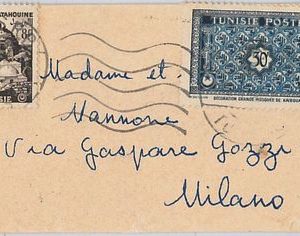 TATAHOUINE
TUNISIE POSTES
50F
DECORATION GRANDE MOSQUEE DE KAIROUAN
Madame et
Mannone
Via Gaspare Gozzi
Milano